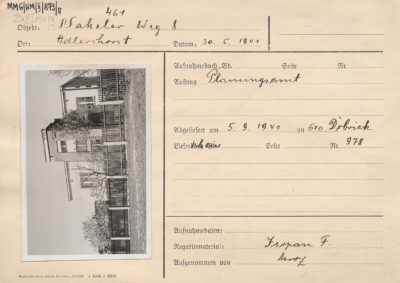 MMG/HM/5/873/8
461
Objekt: Wakeler Weg 8
Ort: Adlershorst Datum: 30. 5. 1941
Aufnahmebuch Bd. Seite Nr.
Auftrag Planungsamt
Abgeliefert am 5. 9. 1941 an 610 Döbrick
Seite Nr. 978
Aufnahmedaten:
Negativmaterial: Isopan F.
Aufgenommen von